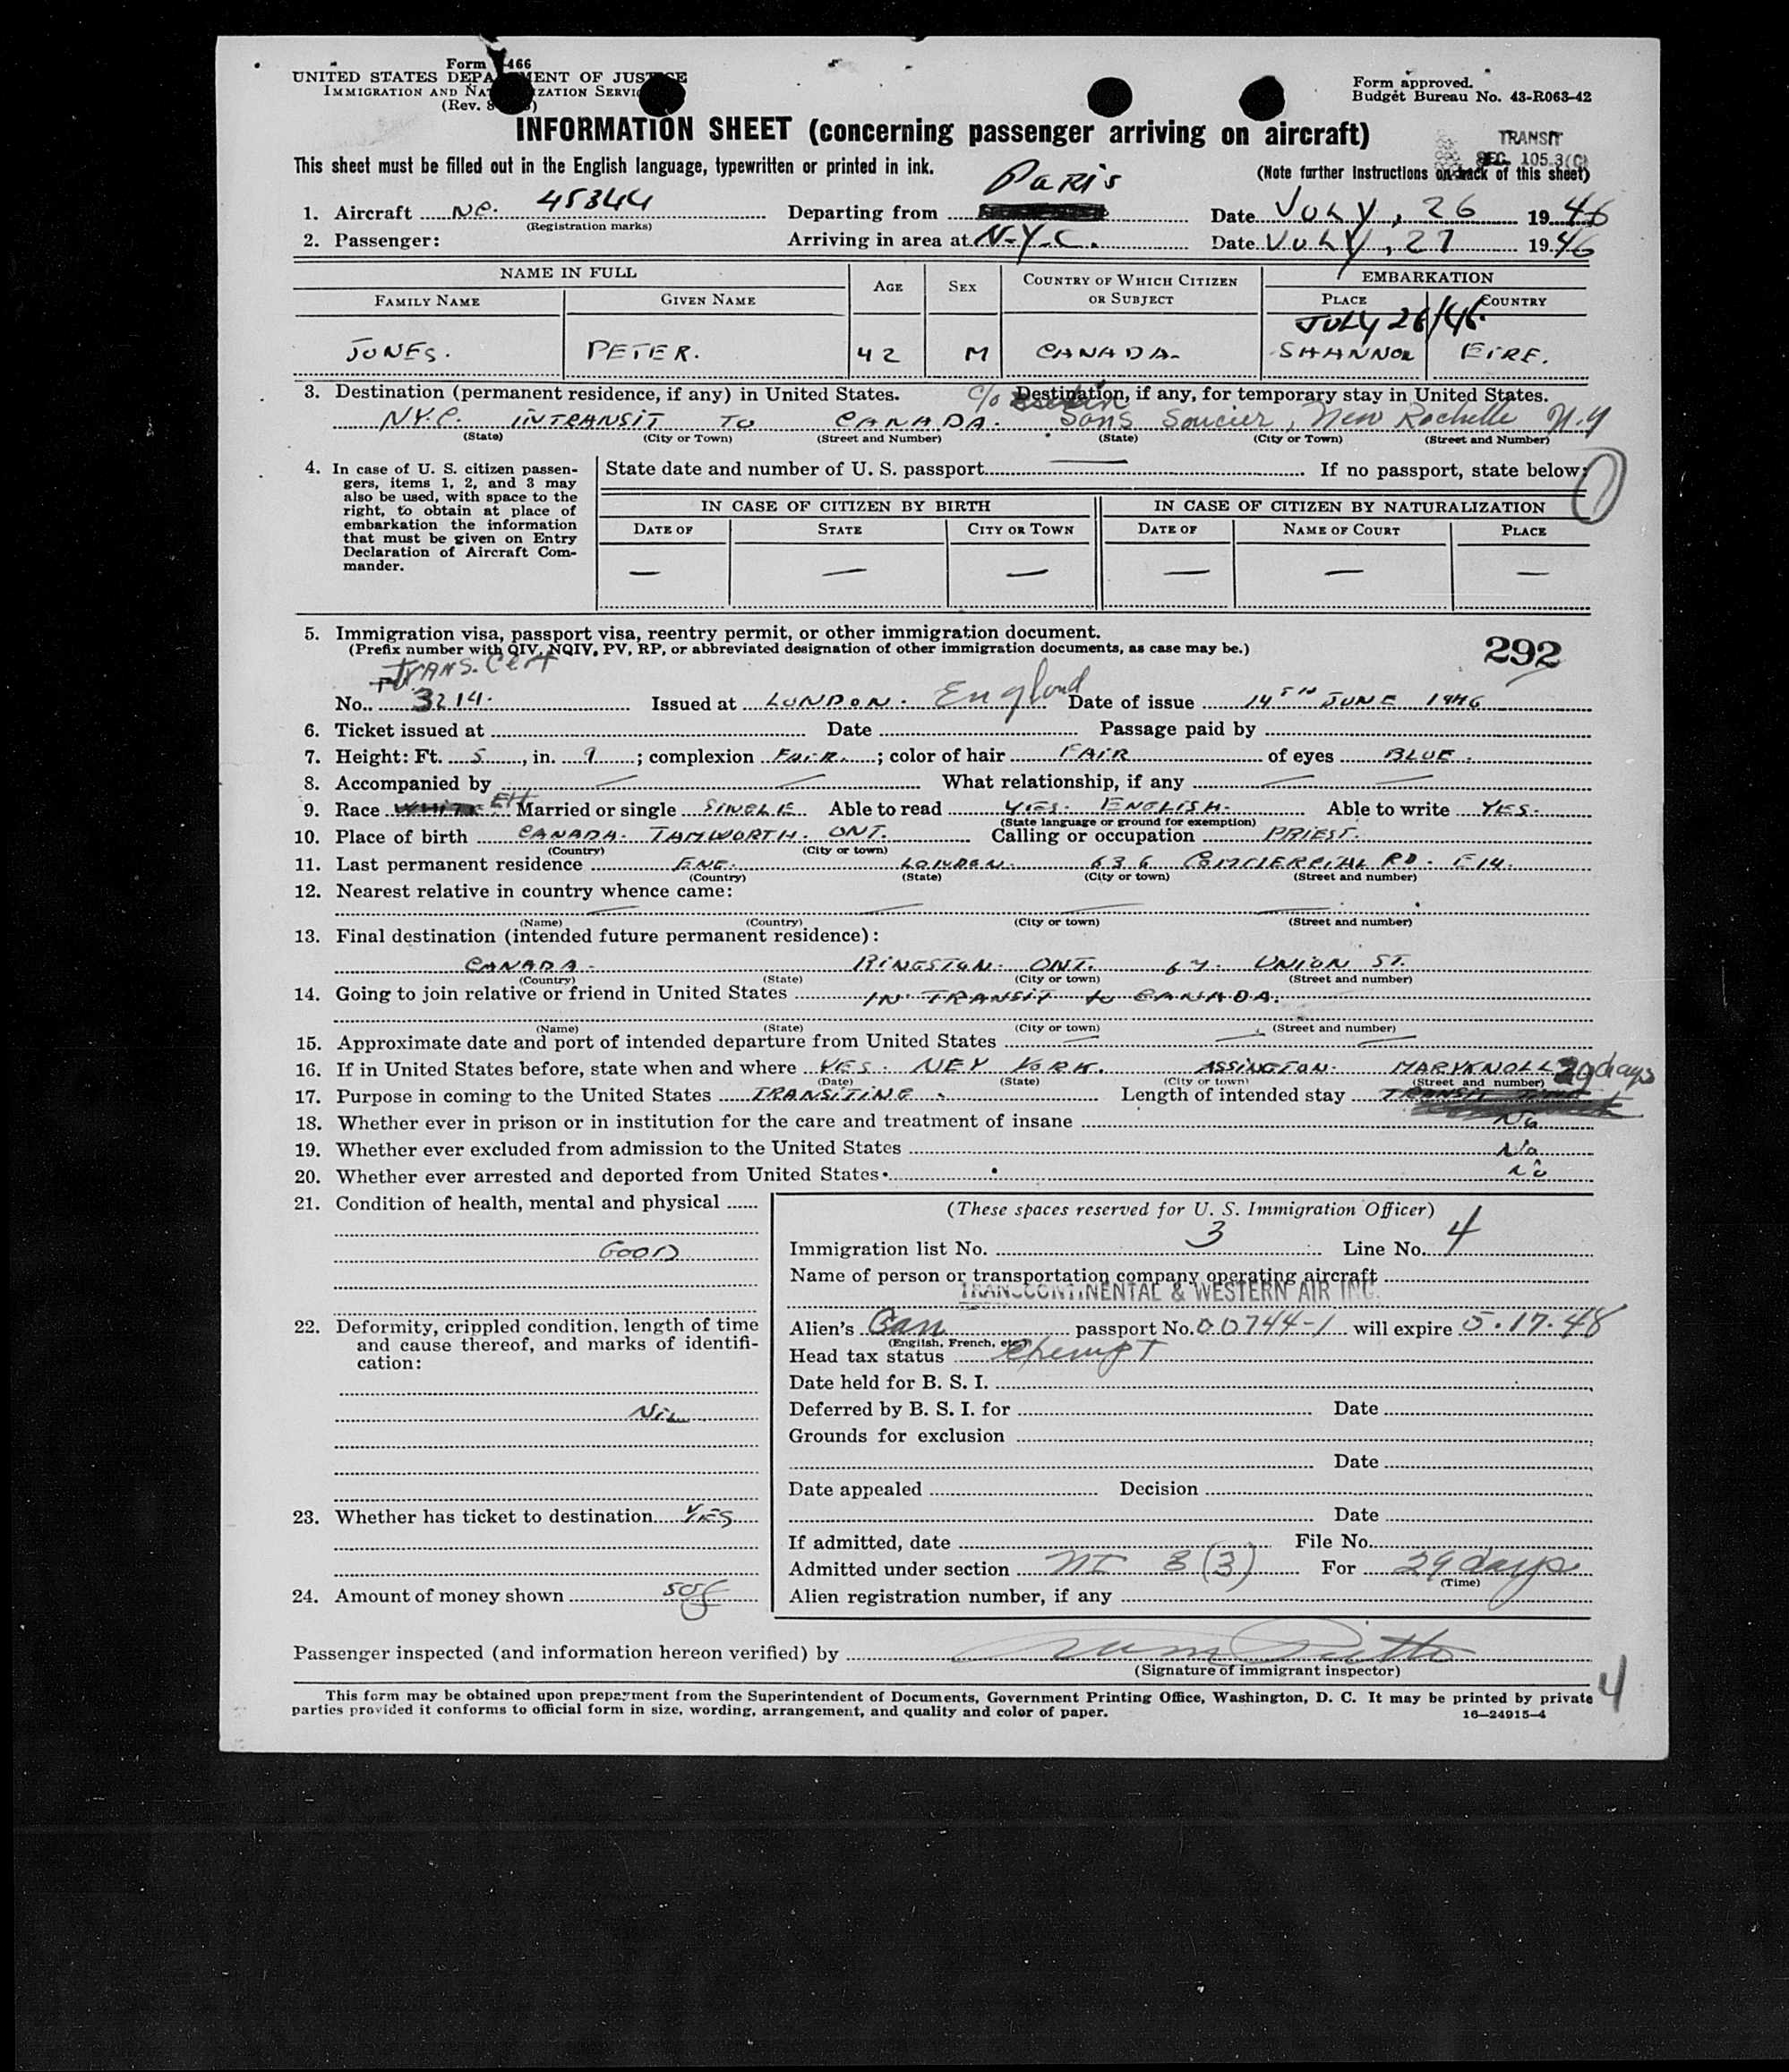 Form 466
UNITED STATES DEPARTMENT OF JUSTICE
IMMIGRATION AND NATURALIZATION SERVICE
(Rev. 8
Form approved.
Budget Bureau No. 43-R063-42
INFORMATION SHEET (concerning passenger arriving on aircraft)
TRANSIT
SEC. 105.3(C)
This sheet must be filled out in the English language, typewritten or printed in ink.
(Note further instructions on back of this sheet)
1. Aircraft NC. 45344 Departing from Paris Date JULY, 26 1946
(Registration marks)
2. Passenger: Arriving in area at N.Y.C. Date JULY, 27 1946
NAME IN FULL AGE SEX COUNTRY OF WHICH CITIZEN OR SUBJECT EMBARKATION
FAMILY NAME GIVEN NAME PLACE COUNTRY
JULY 26/46.
JONES. PETER. 42 M CANADA. SHANNON EIRE.
3. Destination (permanent residence, if any) in United States. Destination, if any, for temporary stay in United States.
N.Y.C. INTRANSIT TO CANADA. c/o Sans Soucier, New Rochelle N.Y
(State) (City or Town) (Street and Number) (State) (City or Town) (Street and Number)
4. In case of U. S. citizen passengers, items 1, 2, and 3 may also be used, with space to the right, to obtain at place of embarkation the information that must be given on Entry Declaration of Aircraft Commander.
State date and number of U. S. passport — If no passport, state below:
IN CASE OF CITIZEN BY BIRTH IN CASE OF CITIZEN BY NATURALIZATION
DATE OF STATE CITY OR TOWN DATE OF NAME OF COURT PLACE
— — — — — —
5. Immigration visa, passport visa, reentry permit, or other immigration document.
(Prefix number with QIV, NQIV, PV, RP, or abbreviated designation of other immigration documents, as case may be.)
292
Trans. Cert
No. 3214. Issued at LONDON. England Date of issue 14TH JUNE 1946
6. Ticket issued at Date Passage paid by
7. Height: Ft. 5, in. 9; complexion FAIR.; color of hair FAIR of eyes BLUE.
8. Accompanied by — — What relationship, if any — —
9. Race WHITE EH Married or single SINGLE Able to read YES. ENGLISH. Able to write YES.
(State language or ground for exemption)
10. Place of birth CANADA. TAMWORTH. ONT. Calling or occupation PRIEST.
(Country) (City or town)
11. Last permanent residence ENG. LONDON. 636 COMMERCIAL RD. E14.
(Country) (State) (City or town) (Street and number)
12. Nearest relative in country whence came:
— — — —
(Name) (Country) (City or town) (Street and number)
13. Final destination (intended future permanent residence):
CANADA. KINGSTON. ONT. 67. UNION ST.
(Country) (State) (City or town) (Street and number)
14. Going to join relative or friend in United States IN TRANSIT to CANADA.
(Name) (State) (City or town) (Street and number)
15. Approximate date and port of intended departure from United States — — —
16. If in United States before, state when and where YES. NEY YORK. ASSINGTON. MARYKNOLL
(Date) (State) (City or town) (Street and number)
29 days
17. Purpose in coming to the United States TRANSITING. Length of intended stay
18. Whether ever in prison or in institution for the care and treatment of insane No
19. Whether ever excluded from admission to the United States No
20. Whether ever arrested and deported from United States No
21. Condition of health, mental and physical
GOOD
22. Deformity, crippled condition, length of time and cause thereof, and marks of identification:
NIL
23. Whether has ticket to destination YES
24. Amount of money shown
(These spaces reserved for U. S. Immigration Officer)
Immigration list No. 3 Line No. 4
Name of person or transportation company operating aircraft
TRANSCONTINENTAL & WESTERN AIR INC.
Alien's Can passport No. 00744-1 will expire 5.17.48
(English, French, etc.)
Head tax status exempt
Date held for B. S. I.
Deferred by B. S. I. for Date
Grounds for exclusion
Date
Date appealed Decision
Date
If admitted, date File No.
Admitted under section NI 3(3) For 29 days
(Time)
Alien registration number, if any
Passenger inspected (and information hereon verified) by
(Signature of immigrant inspector)
4
This form may be obtained upon prepayment from the Superintendent of Documents, Government Printing Office, Washington, D. C. It may be printed by private
parties provided it conforms to official form in size, wording, arrangement, and quality and color of paper.
16—24915-4